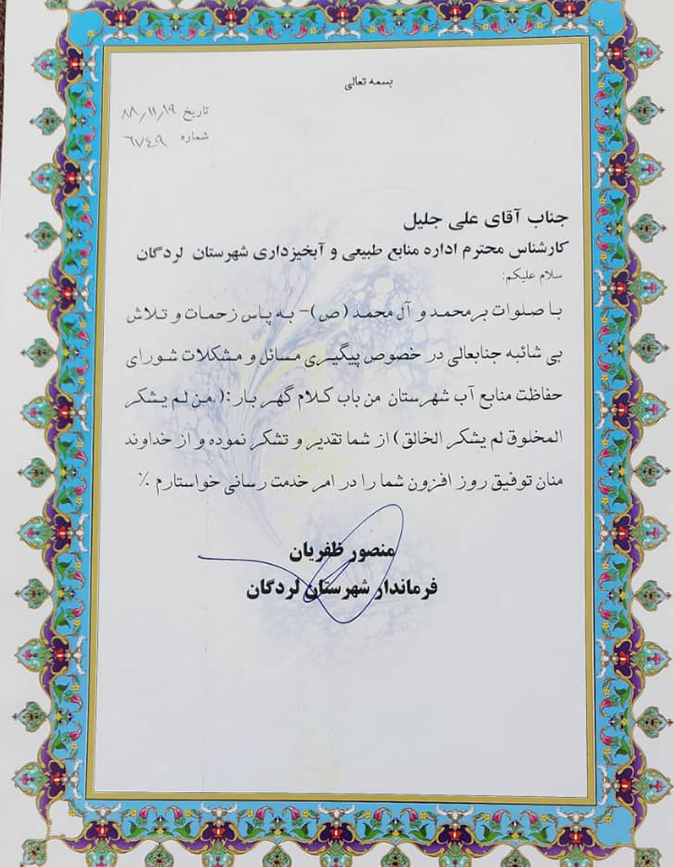 بسمه تعالی
تاریخ ۸۸/۱۱/۱۹
شماره ۶۷۴۹
جناب آقای علی جلیل
کارشناس محترم اداره منابع طبیعی و آبخیزداری شهرستان لردگان
سلام علیکم:
با صلوات بر محمد و آل محمد (ص)- به پاس زحمات و تلاش
بی شائبه جنابعالی در خصوص پیگیری مسائل و مشکلات شورای
حفاظت منابع آب شهرستان من باب کلام گهر بار:( من لم یشکر
المخلوق لم یشکر الخالق) از شما تقدیر و تشکر نموده و از خداوند
منان توفیق روز افزون شما را در امر خدمت رسانی خواستارم ٪
منصور ظفریان
فرماندار شهرستان لردگان